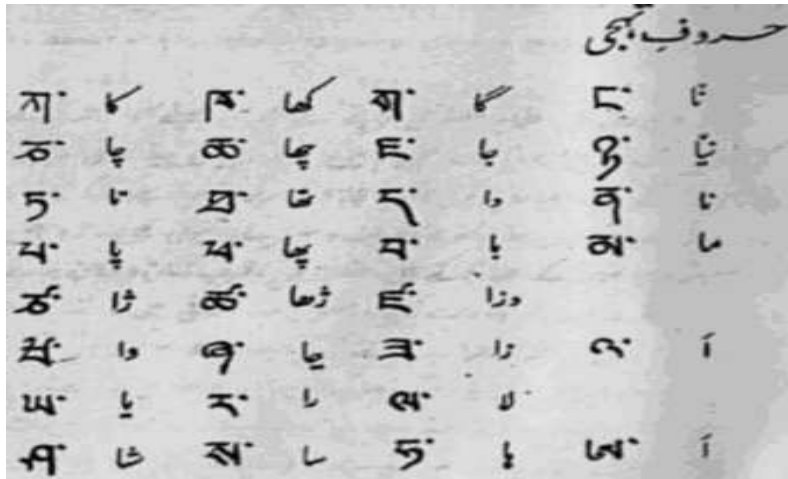 حروفِ تہجی
ཀ་ کا ཁ་ کھا ག་ گا ང་
ཅ་ چا ཆ་ چھا ཇ་ جا ཉ་ نیا
ཏ་ تا ཐ་ تھا ད་ دا ན་ نا
པ་ پا ཕ་ پھا བ་ با མ་ ما
ཙ་ ژا ཚ་ ژھا ཛ་ وزا
ཝ་ وا ཞ་ ཟ་ زا འ་ آ
ཡ་ یا ར་ را ལ་ لا
ཤ་ شا ས་ سا ཧ་ ہا ཨ་ آ